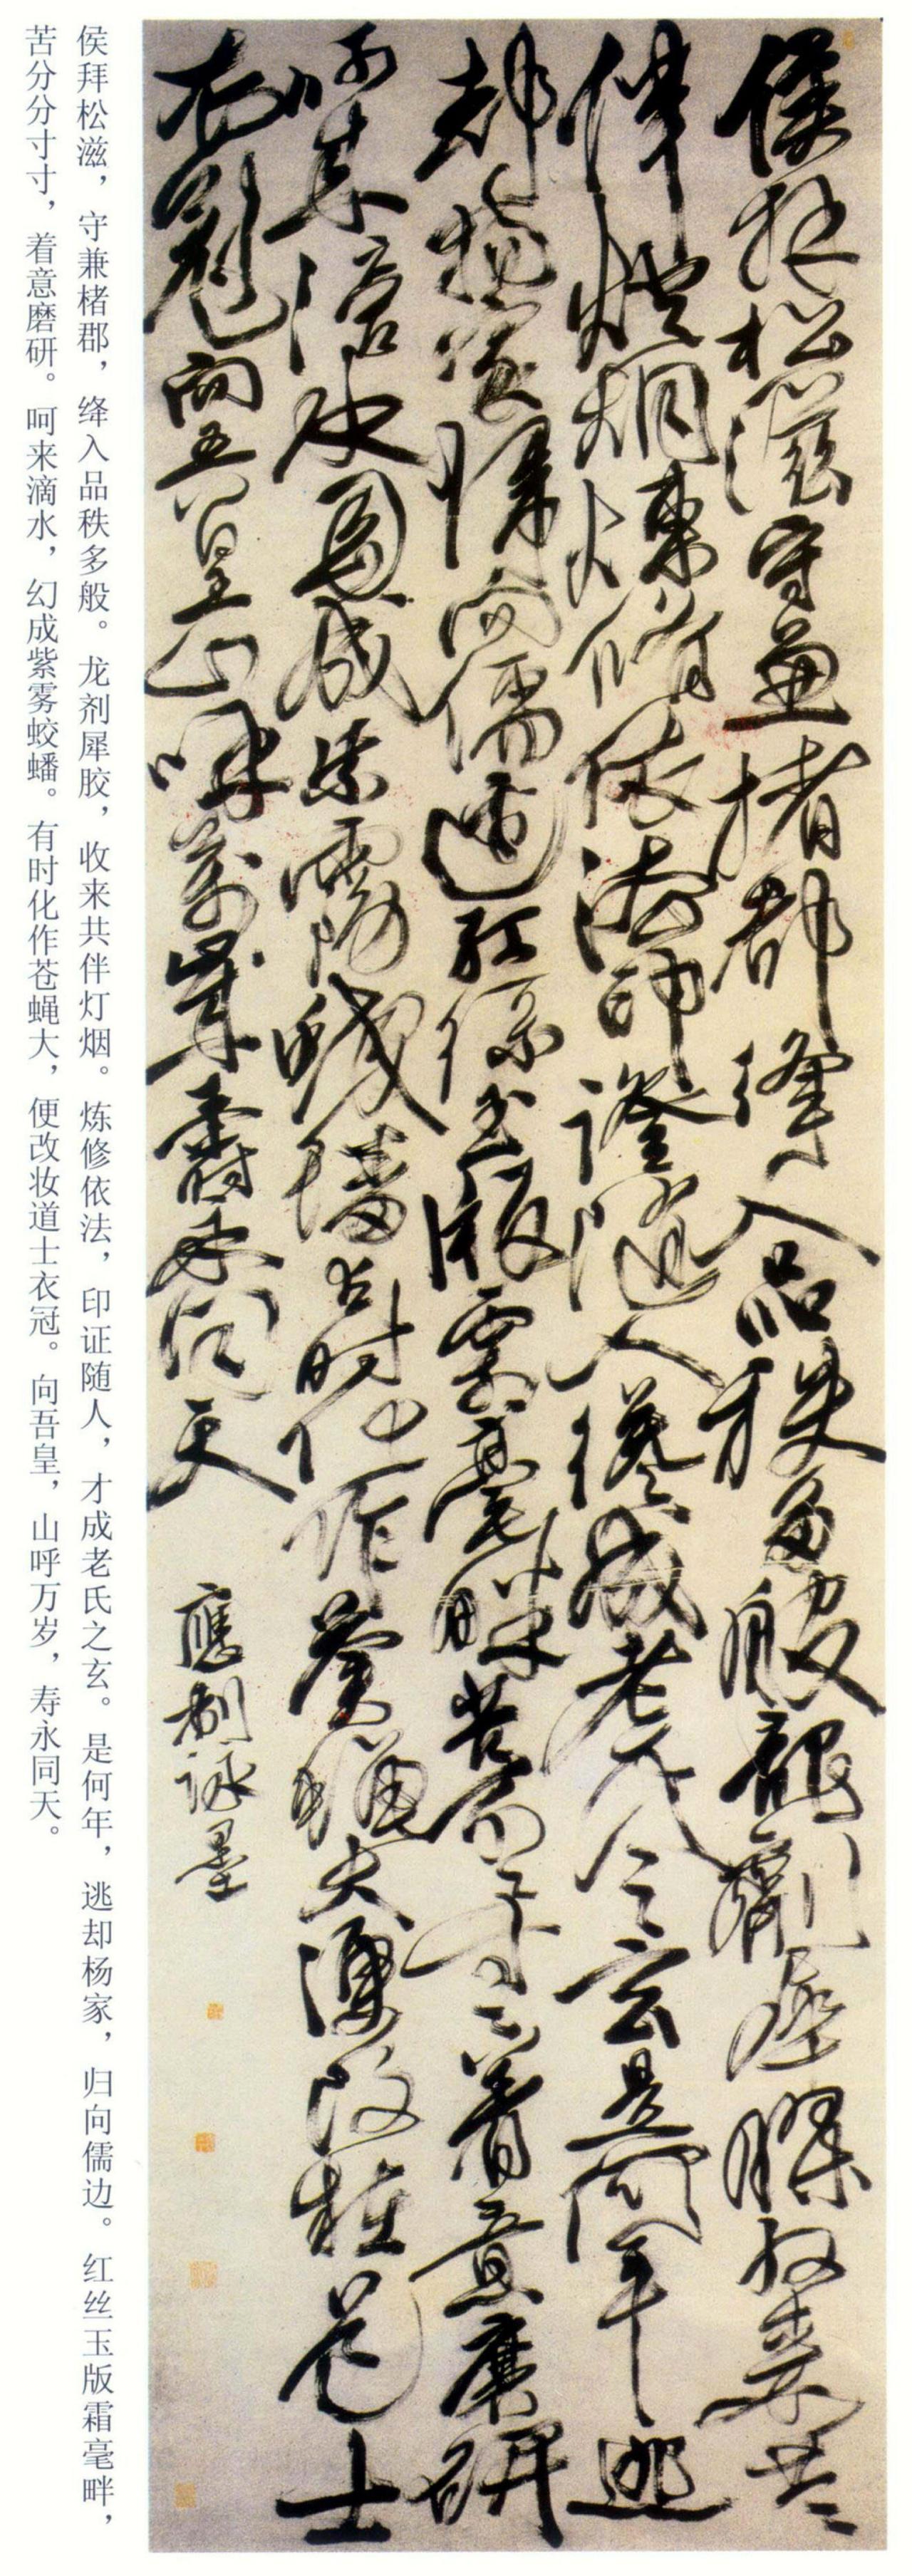 侯拜松滋守兼楮郡絳入品秩多般龍劑犀膠收來共
伴燈烟煉修依法印證隨人纔成老氏之玄是何年逃
却楊家歸向儒邊紅絲玉版霜毫畔苦分分寸寸着意磨研
呵來滴水幻成紫霧蛟蟠有時化作蒼蠅大便改粧道士
衣冠向吾皇山呼萬歲壽永同天
應制詠墨
侯拜松滋，守兼楮郡，绛入品秩多般。龙剑犀胶，收来共伴灯烟。炼修依法，印证随人，才成老氏之玄。是何年，逃却杨家，归向儒边。红丝玉版霜毫畔，
苦分分寸寸，着意磨研。呵来滴水，幻成紫雾蛟蟠。有时化作苍蝇大，便改妆道士衣冠。向吾皇，山呼万岁，寿永同天。